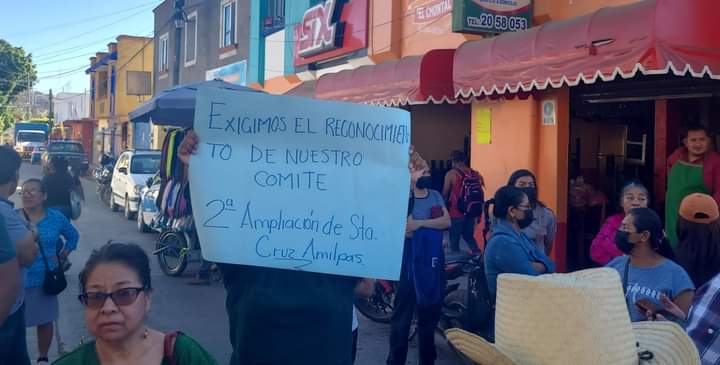 SX
EL CHONTAL
TEL.
20 58 053
EXIGIMOS EL RECONOCIMIEN
TO DE NUESTRO
COMITE
2ª AMPLIACIÓN DE STA.
CRUZ AMILPAS.